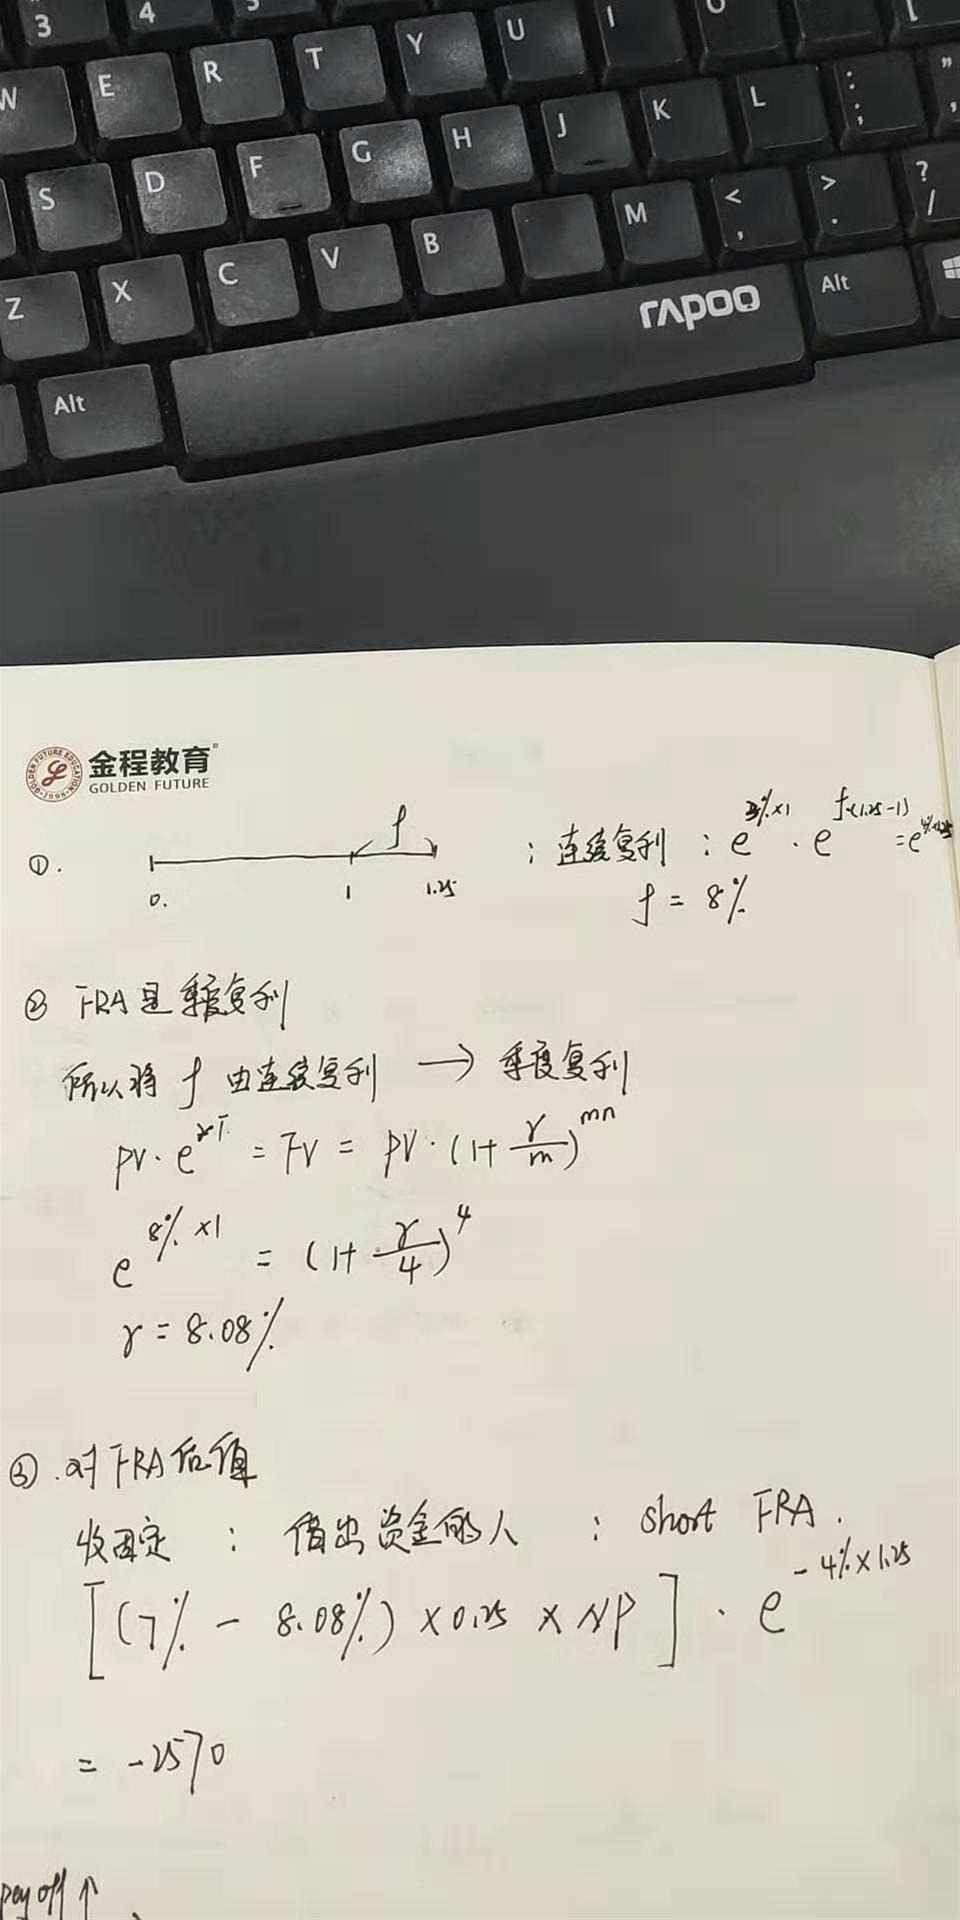 3 4 5
W E R T Y U I O
S D F G H J K L : ; " ,
Z X C V B M < , > . ? /
Alt rapoo Alt
金程教育
GOLDEN FUTURE
①. 0. 1 1.25 f ; 连续复利 : e^{3%×1} · e^{f·(1.25-1)} = e^{4%×1.25}
f = 8%
② FRA是季度复利
所以将 f 由连续复利 → 季度复利
PV · e^{rT} = FV = PV · (1+ r/m)^{mn}
e^{8%×1} = (1+ r/4)^4
r = 8.08%
③. 对FRA估值
收固定 : 借出资金的人 : short FRA.
[(7% - 8.08%) × 0.25 × NP] · e^{-4%×1.25}
= -2570
pay off ↑